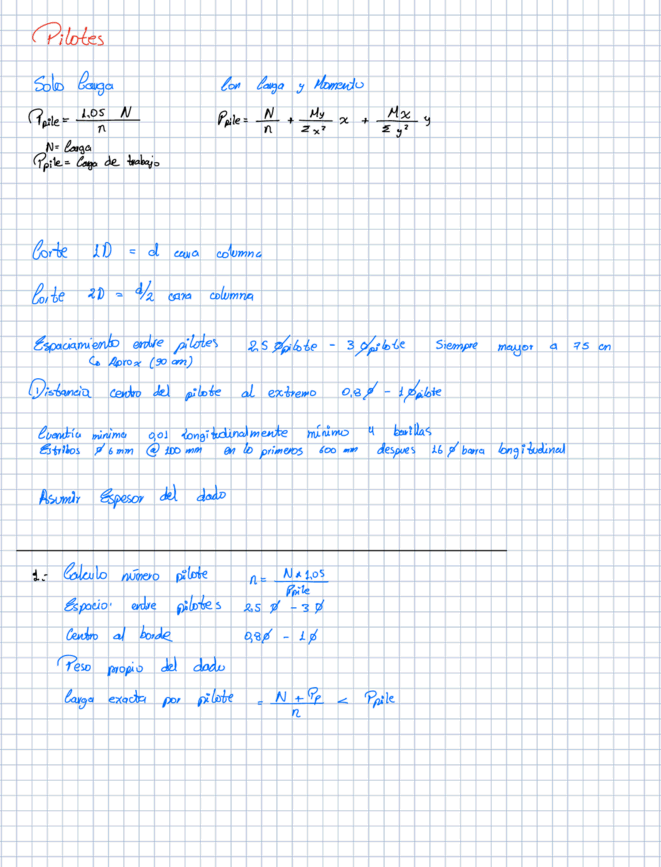 Pilotes
Solo Carga
Con Carga y Momento
Ppile = 1.05 N / n
Ppile = N/n + My/Σx² x + Mx/Σy² y
N = Carga
Ppile = Carga de trabajo
Corte 1D = d cara columna
Corte 2D = d/2 cara columna
Espaciamiento entre pilotes 2,5 ϕpilote - 3 ϕpilote Siempre mayor a 75 cm
↳ Aprox (90 cm)
Distancia centro del pilote al extremo 0,8 ϕ - 1 ϕpilote
Cuantía mínima 0,01 longitudinalmente mínimo 4 varillas
Estribos ϕ 6 mm @ 100 mm en lo primeros 600 mm despues 16 ϕ barra longitudinal
Asumir Espesor del dado
1.- Calculo número pilote n = N x 1,05 / Ppile
Espacio entre pilotes 2,5 ϕ - 3 ϕ
Centro al borde 0,8ϕ - 1ϕ
Peso propio del dado
Carga exacta por pilote = N + Pp / n < Ppile